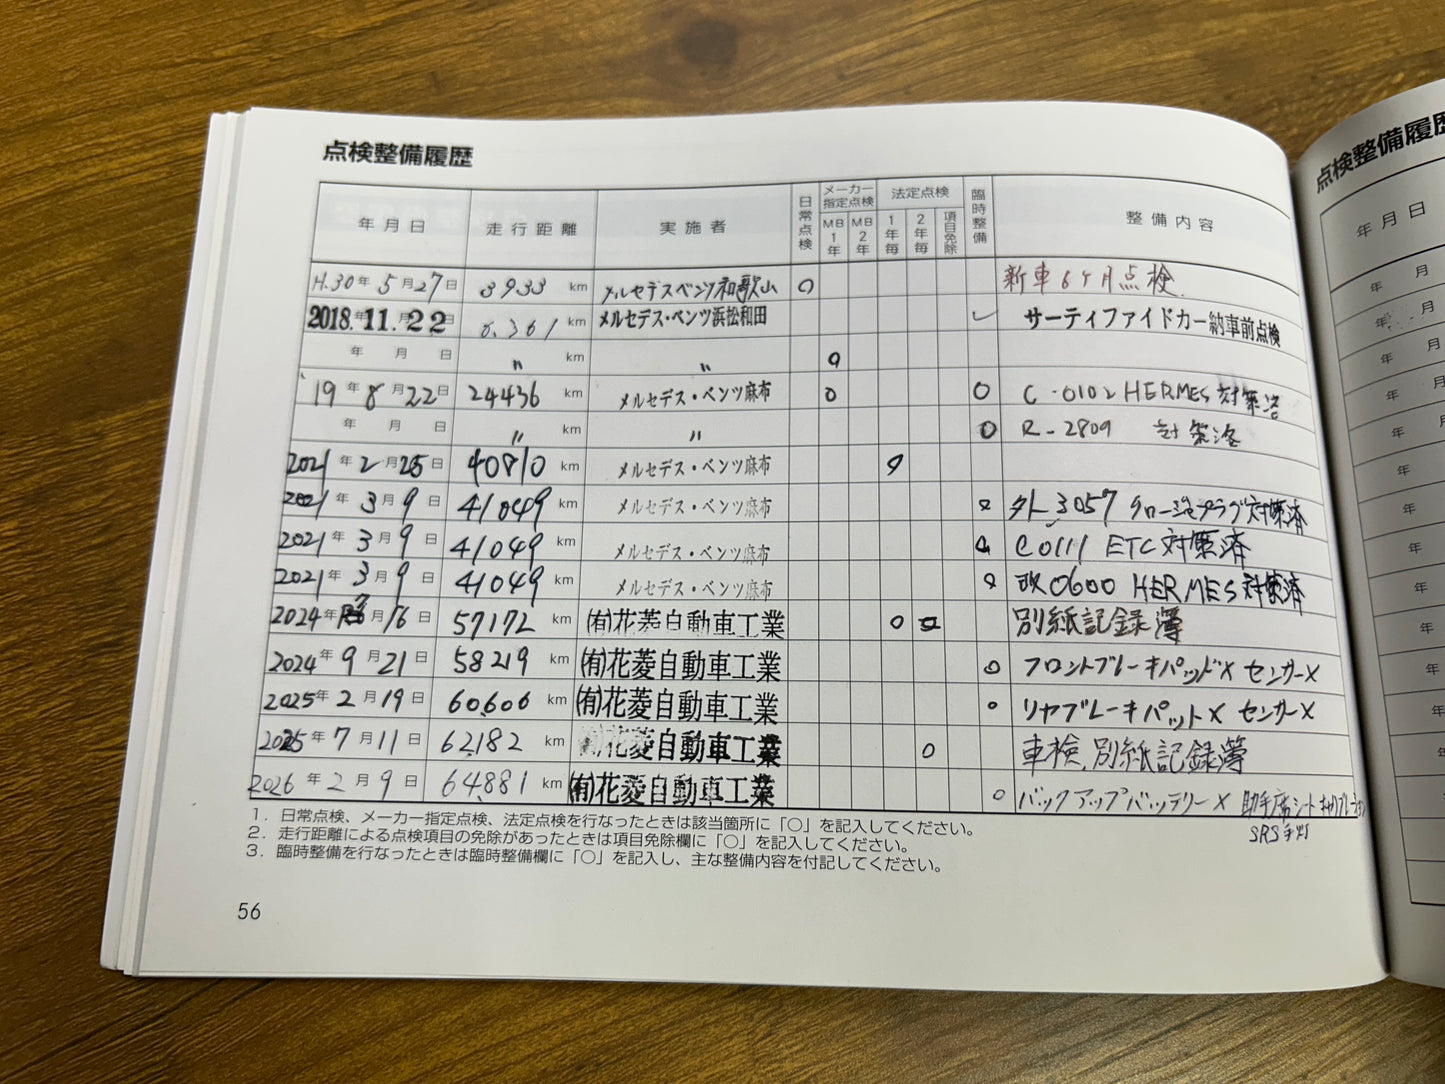 点検整備履歴
年月日 走行距離 実施者 日常点検 メーカー指定点検 MB1年 MB2年 法定点検 1年毎 2年毎 項目免除 臨時整備 整備内容
H.30年 5月27日 3933 km メルセデスベンツ和歌山 ○ 新車6ヶ月点検
2018.年11.月22日 6.361 km メルセデス・ベンツ浜松和田 ✓ サーティファイドカー納車前点検
年 月 日 〃 km 〃 ○
19年 8月22日 24436 km メルセデス・ベンツ麻布 ○ ○ C-0102 HERMES 対策済
年 月 日 〃 km 〃 ○ R-2809 対策済
2021年 2月25日 40810 km メルセデス・ベンツ麻布 ○
2021年 3月9日 41049 km メルセデス・ベンツ麻布 ○ 外3057 クロージングプラグ対策済
2021年 3月9日 41049 km メルセデス・ベンツ麻布 ○ C0111 ETC対策済
2021年 3月9日 41049 km メルセデス・ベンツ麻布 ○ 改0600 HERMES対策済
2024年 7月16日 57172 km (有)花菱自動車工業 ○ 別紙記録簿
2024年 9月21日 58219 km (有)花菱自動車工業 ○ フロントブレーキパッド× センサー×
2025年 2月19日 60606 km (有)花菱自動車工業 ○ リヤブレーキパット× センサー×
2025年 7月11日 62182 km (有)花菱自動車工業 ○ 車検、別紙記録簿
2026年 2月9日 64881 km (有)花菱自動車工業 ○ バックアップバッテリー× 助手席シートキャリブレーション
SRS
1. 日常点検、メーカー指定点検、法定点検を行なったときは該当箇所に「○」を記入してください。
2. 走行距離による点検項目の免除があったときは項目免除欄に「○」を記入してください。
3. 臨時整備を行なったときは臨時整備欄に「○」を記入し、主な整備内容を付記してください。
56
点検整備履歴
年月日
年 月
年 月
年 月
年 月
年 月
年
年
年
年
年
年
年
年